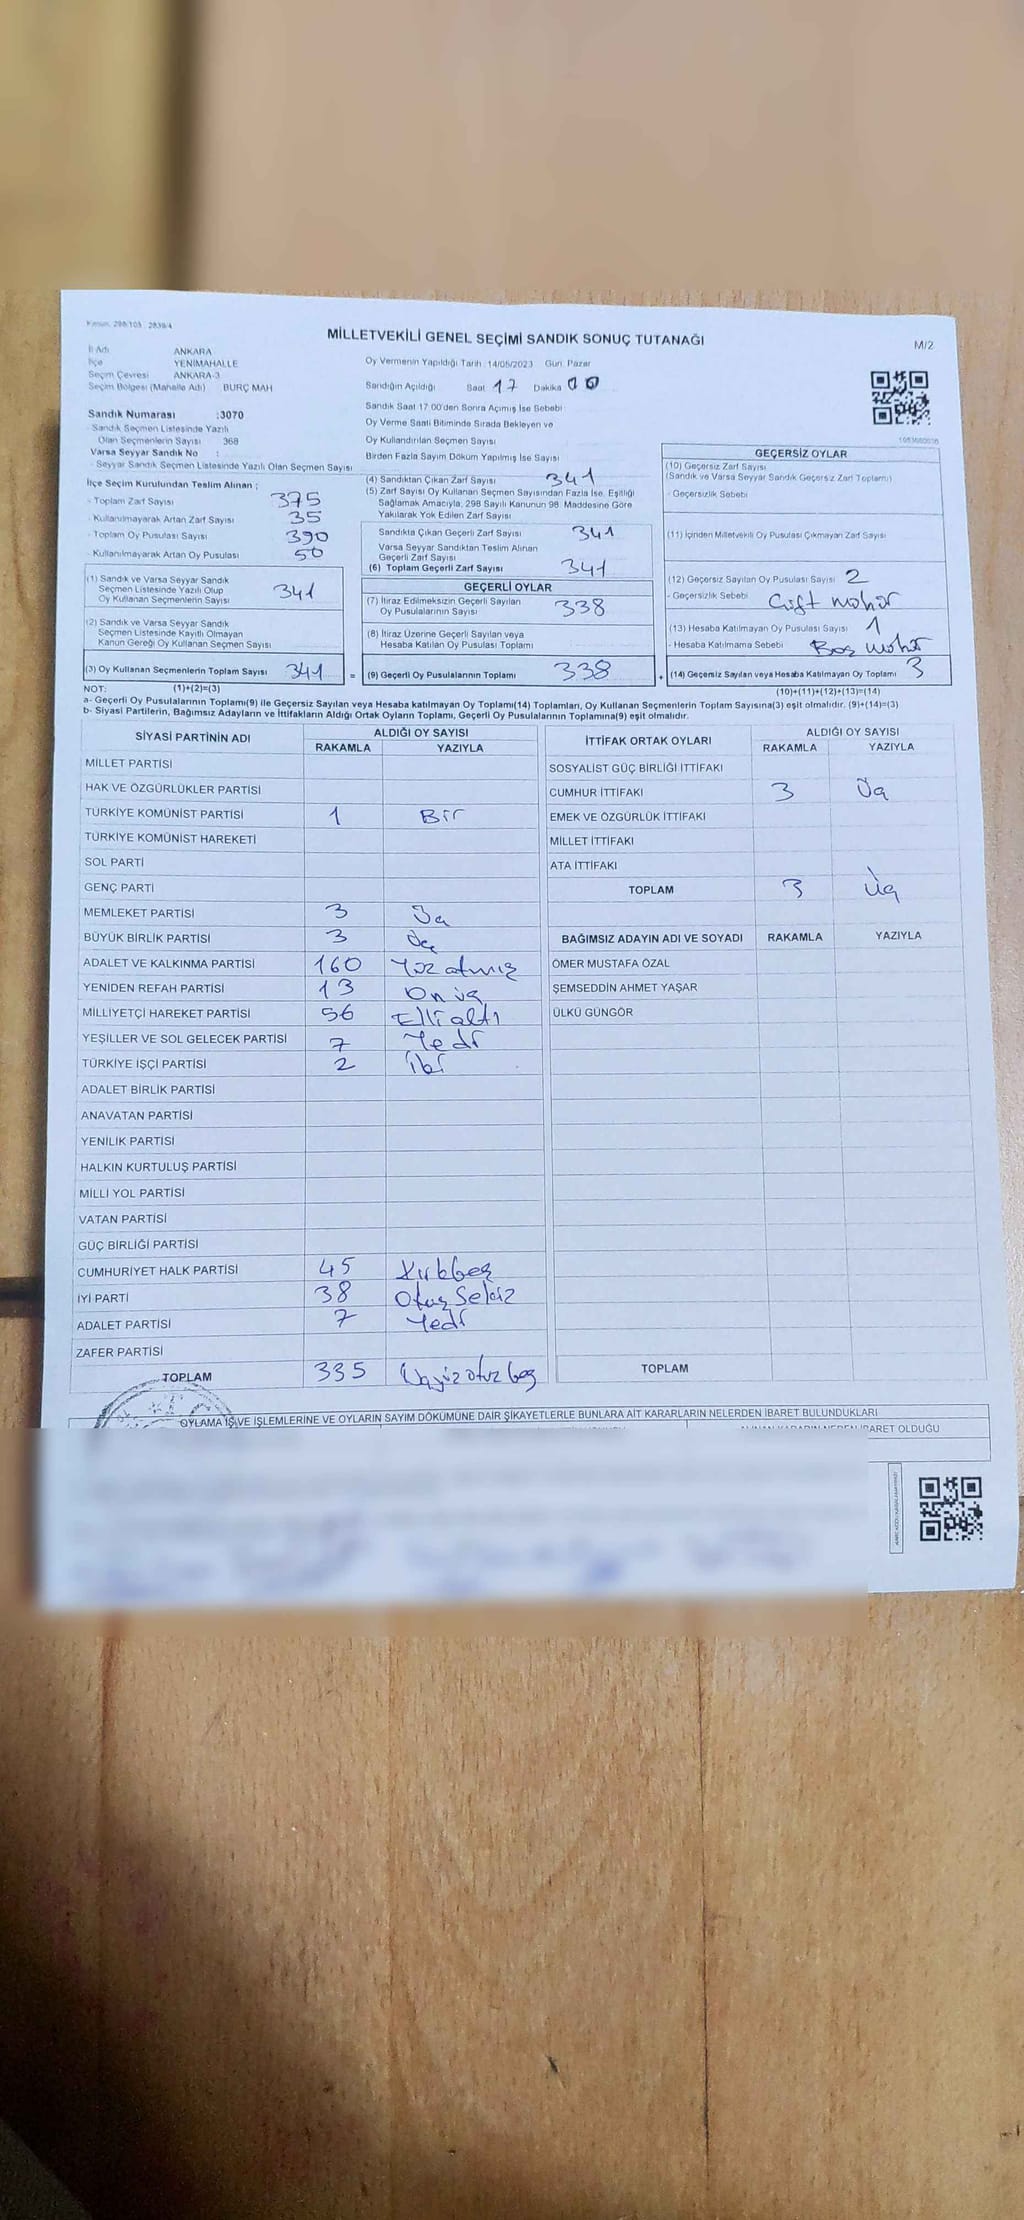 Kanun: 298/105 2839/4
MİLLETVEKİLİ GENEL SEÇİMİ SANDIK SONUÇ TUTANAĞI
M/2
İl Adı ANKARA
İlçe YENİMAHALLE
Seçim Çevresi ANKARA-3
Seçim Bölgesi (Mahalle Adı) BURÇ MAH
Oy Vermenin Yapıldığı Tarih :14/05/2023 Gün: Pazar
Sandığın Açıldığı Saat 17 Dakika 00
Sandık Saat 17:00'den Sonra Açımış İse Sebebi
Oy Verme Saati Bitiminde Sırada Bekleyen ve
Oy Kullandırılan Seçmen Sayısı
Birden Fazla Sayım Döküm Yapılmış İse Sayısı
Sandık Numarası :3070
- Sandık Seçmen Listesinde Yazılı
Olan Seçmenlerin Sayısı 368
Varsa Seyyar Sandık No :
- Seyyar Sandık Seçmen Listesinde Yazılı Olan Seçmen Sayısı
İlçe Seçim Kurulundan Teslim Alınan :
- Toplam Zarf Sayısı 375
- Kullanılmayarak Artan Zarf Sayısı 35
- Toplam Oy Pusulası Sayısı 390
- Kullanılmayarak Artan Oy Pusulası 50
(1) Sandık ve Varsa Seyyar Sandık
Seçmen Listesinde Yazılı Olup
Oy Kullanan Seçmenlerin Sayısı 341
(2) Sandık ve Varsa Seyyar Sandık
Seçmen Listesinde Kayıtlı Olmayan
Kanun Gereği Oy Kullanan Seçmen Sayısı
(3) Oy Kullanan Seçmenlerin Toplam Sayısı 341 =
(4) Sandıktan Çıkan Zarf Sayısı 341
(5) Zarf Sayısı Oy Kullanan Seçmen Sayısından Fazla İse, Eşitliği
Sağlamak Amacıyla, 298 Sayılı Kanunun 98. Maddesine Göre
Yakılarak Yok Edilen Zarf Sayısı
Sandıkta Çıkan Geçerli Zarf Sayısı 341
Varsa Seyyar Sandıktan Teslim Alınan
Geçerli Zarf Sayısı
(6) Toplam Geçerli Zarf Sayısı 341
GEÇERLİ OYLAR
(7) İtiraz Edilmeksizin Geçerli Sayılan
Oy Pusulalarının Sayısı 338
(8) İtiraz Üzerine Geçerli Sayılan veya
Hesaba Katılan Oy Pusulası Toplamı
(9) Geçerli Oy Pusulalarının Toplamı 338 +
GEÇERSİZ OYLAR
(10) Geçersiz Zarf Sayısı
(Sandık ve Varsa Seyyar Sandık Geçersiz Zarf Toplamı)
- Geçersizlik Sebebi
(11) İçinden Milletvekili Oy Pusulası Çıkmayan Zarf Sayısı
(12) Geçersiz Sayılan Oy Pusulası Sayısı 2
- Geçersizlik Sebebi Çift mühür
(13) Hesaba Katılmayan Oy Pusulası Sayısı 1
- Hesaba Katılmama Sebebi Boş mühür
(14) Geçersiz Sayılan veya Hesaba Katılmayan Oy Toplamı 3
NOT: (1)+(2)=(3)
(10)+(11)+(12)+(13)=(14)
a- Geçerli Oy Pusulalarının Toplamı(9) ile Geçersiz Sayılan veya Hesaba katılmayan Oy Toplamı(14) Toplamları, Oy Kullanan Seçmenlerin Toplam Sayısına(3) eşit olmalıdır. (9)+(14)=(3)
b- Siyasi Partilerin, Bağımsız Adayların ve İttifakların Aldığı Ortak Oyların Toplamı, Geçerli Oy Pusulalarının Toplamına(9) eşit olmalıdır.
SİYASİ PARTİNİN ADI ALDIĞI OY SAYISI
RAKAMLA YAZIYLA
MİLLET PARTİSİ
HAK VE ÖZGÜRLÜKLER PARTİSİ
TÜRKİYE KOMÜNİST PARTİSİ 1 Bir
TÜRKİYE KOMÜNİST HAREKETİ
SOL PARTİ
GENÇ PARTİ
MEMLEKET PARTİSİ 3 Üç
BÜYÜK BİRLİK PARTİSİ 3 Üç
ADALET VE KALKINMA PARTİSİ 160 Yüz atmış
YENİDEN REFAH PARTİSİ 13 On üç
MİLLİYETÇİ HAREKET PARTİSİ 56 Elli altı
YEŞİLLER VE SOL GELECEK PARTİSİ 7 Yedi
TÜRKİYE İŞÇİ PARTİSİ 2 İki
ADALET BİRLİK PARTİSİ
ANAVATAN PARTİSİ
YENİLİK PARTİSİ
HALKIN KURTULUŞ PARTİSİ
MİLLİ YOL PARTİSİ
VATAN PARTİSİ
GÜÇ BİRLİĞİ PARTİSİ
CUMHURİYET HALK PARTİSİ 45 Kırkbeş
İYİ PARTİ 38 Otuz Sekiz
ADALET PARTİSİ 7 Yedi
ZAFER PARTİSİ
TOPLAM 335 Üçyüz otuz beş
İTTİFAK ORTAK OYLARI ALDIĞI OY SAYISI
RAKAMLA YAZIYLA
SOSYALİST GÜÇ BİRLİĞİ İTTİFAKI
CUMHUR İTTİFAKI 3 Üç
EMEK VE ÖZGÜRLÜK İTTİFAKI
MİLLET İTTİFAKI
ATA İTTİFAKI
TOPLAM 3 Üç
BAĞIMSIZ ADAYIN ADI VE SOYADI RAKAMLA YAZIYLA
ÖMER MUSTAFA ÖZAL
ŞEMSEDDİN AHMET YAŞAR
ÜLKÜ GÜNGÖR
TOPLAM
OYLAMA İŞ VE İŞLEMLERİNE VE OYLARIN SAYIM DÖKÜMÜNE DAİR ŞİKAYETLERLE BUNLARA AİT KARARLARIN NELERDEN İBARET BULUNDUKLARI
İBARET OLDUĞU